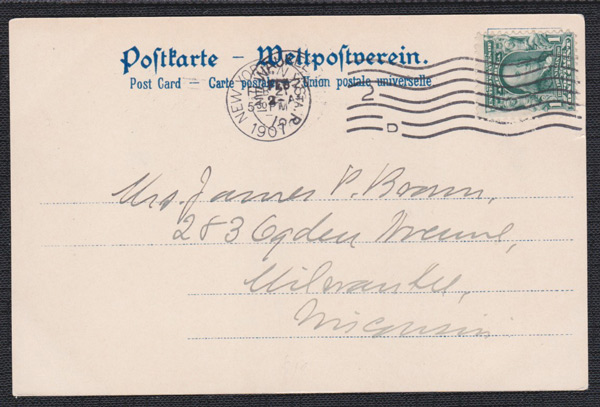 Postkarte – Weltpostverein.
Post Card – Carte postale – Union postale universelle
NEW YORK
FEB
5 30 PM
1907
2
D
1
1
Mrs. James P. Brown,
283 Ogden Avenue,
Milwaukee,
Wisconsin